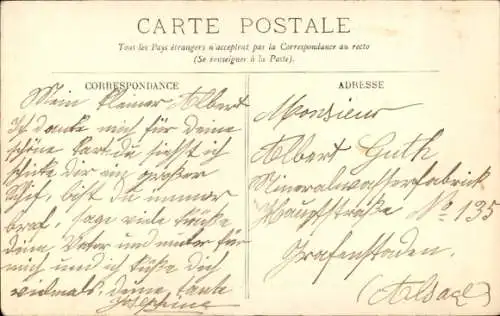 CARTE POSTALE
Tous les Pays étrangers n'acceptent pas la Correspondance au recto
(Se renseigner à la Poste).
CORRESPONDANCE
Mein kleiner Albert
Ich danke mich für deine
schöne Cart. du siehst ich
schicke Dir ein großer
Schif, bist du immer
braf, sage viele
deine Vater und muter für
mich und ich Dich
vielmals. deine tante
Josephine
ADRESSE
Monsieur
Albert Guth
Mineralwasserfabrick
Hauptstraße No 135
Grafenstaden.
(Alsace)